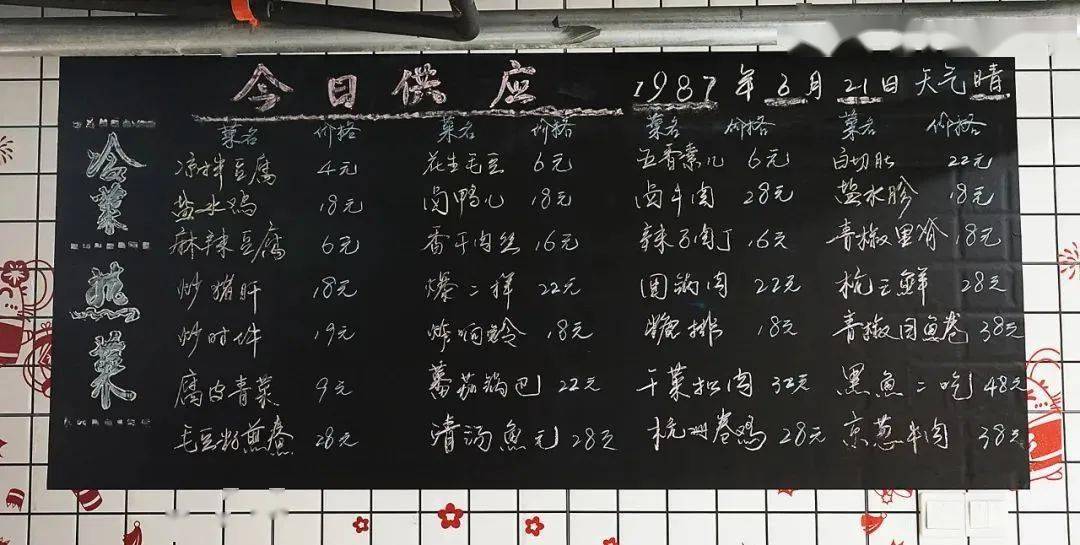 今日供应 1987年6月21日 天气晴
菜名 价格 菜名 价格 菜名 价格 菜名 价格
冷菜
凉拌豆腐 4元 花生毛豆 6元 五香素儿 6元 白切肚 22元
盐水鸡 18元 卤鸭儿 18元 卤牛肉 28元 盐水胗 18元
热菜
麻辣豆腐 6元 香干肉丝 16元 辣子肉丁 16元 青椒里脊 18元
炒猪肝 18元 爆二样 22元 回锅肉 22元 杭三鲜 28元
炒时件 19元 炸响铃 18元 糖排 18元 青椒目鱼卷 38元
腐皮青菜 9元 蕃茄锅巴 22元 干菜扣肉 32元 黑鱼二吃 48元
毛豆籽煎卷 28元 清汤鱼元 28元 杭州卷鸡 28元 京葱牛肉 38元